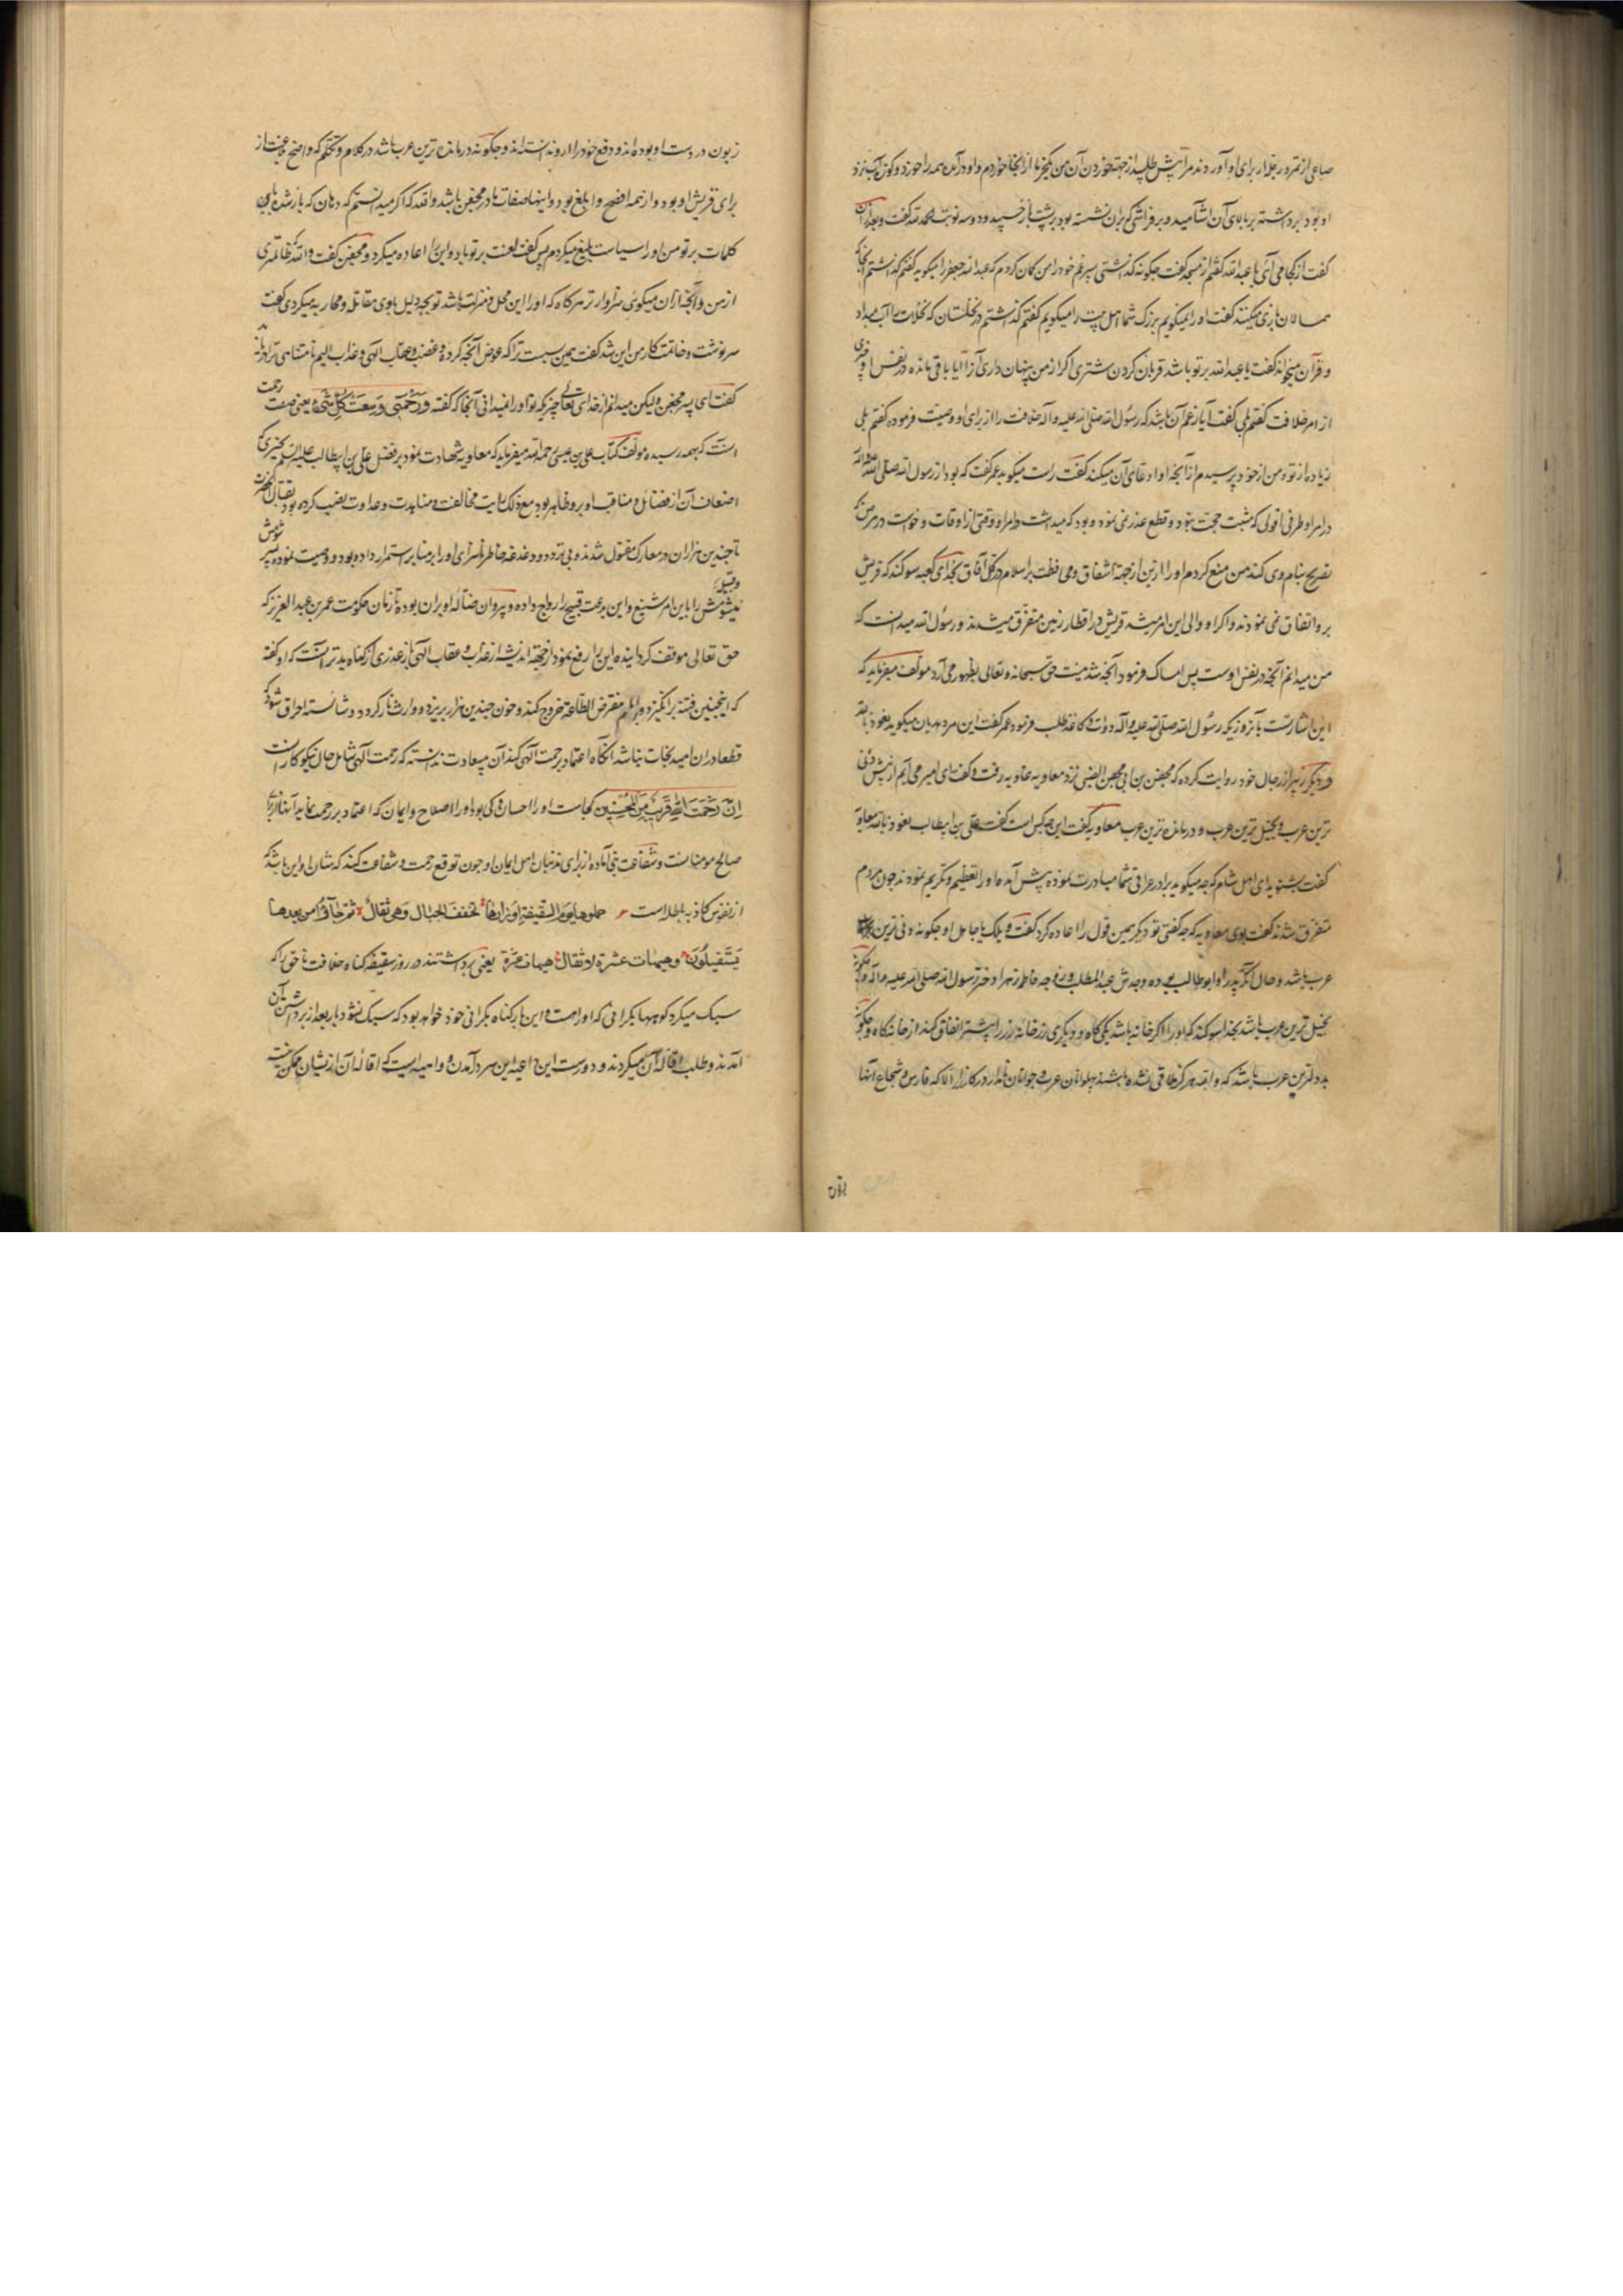 صاعی از تمر در جلد از برای او آوردند مرا پیش طلبید از جهة خوردن آن من یک خرما از آنجا خوردم و او در آمد همه را خورد و کوزه آب نزد
او بود برداشته بر بالای آن آشامید و بر فراشی که بران نشسته بود بر پشت باز خسپید و دو سه نوبت الحمد لله گفت و بعد از آن
گفت از کجا می آی یا عبد الله گفتم از مسجد گفت چکونه گذاشتی پسر عم خود را من کمان کردم که عبد الله جعفر را میکوید گفتم گذاشتم آنجا که
همسالان بازی میکنند گفت او را نمیکویم بزرک شما اهل بیت را میکویم گفتم گذاشتم در نخلستان که نخلات را آب میداد
و قرآن میخواند گفت یا عبد الله بر تو باشد قربان کردن شتری اگر از من پنهان داری آنرا آیا باقی مانده در نفس او چیزی
از امر خلافت گفتم بلی گفت آیا زعم آن باشد که رسول الله صلی الله علیه و آله خلافت را از برای او وصیت فرموده گفتم بلی
زیاده از تو و من از خود پرسیدم از آنچه او ادعای آن میکند گفت راست میکوید عمر گفت که بود از رسول الله صلی الله علیه و آله
در امر او طرفی از قولی که مثبت حجت نبود و قطع عذر نمی نمود و بود که میداشت در امر او وقتی از اوقات و خواست در مرض که
تصریح بنام وی کند من منع کردم او را ازین از جهة اشفاق و محافظت بر اسلام در کل آفاق بخدای کعبه سوکند که قریش
برو اتفاق نمی نمودند و اکر او والی این امر میشد قریش در اقطار زمین متفرق میشدند و رسول الله میدانست که
من میدانم آنچه در نفس اوست پس امساک فرمود و آنچه شد مشیت حق سبحانه و تعالی بظهور می آرد مولف میفرماید که
این اشارتست بآنروزیکه رسول الله صلی الله علیه و آله دوات و کاغذ طلب فرمود عمر گفت این مرد هذیان میکوید نعوذ بالله
و دیکر زبیر از رجال خود روایت کرده که محفن بن ابی محفن الضبی نزد معاویه غاویه رفت و گفت ای امیر می آیم از پیش دنی
ترین عرب و بخیل ترین عرب و درمانده ترین عرب معاویه گفت این چه کس است گفت علی بن ابیطالب نعوذ بالله معاویه
گفت بشنوید ای اهل شام که چه میکوید برادر عراقی شما مبادرت نموده پیش آمده او را تعظیم و تکریم نمودند چون مردم
متفرق شدند گفت بوی معاویه که چه گفتی تو دیکر همین قول را اعاده کرد گفت ویلک یا جاهل او چکونه دنی ترین
عرب باشد و حال آنکه پدر او ابو طالب بوده و جدش عبد المطلب و زوجه فاطمه زهرا دختر رسول الله صلی الله علیه و آله و چکونه
بخیل ترین عرب باشد بخدا سوکند که او را اکر خانه باشد یکی کاه و دیکری زر خانه زر را پیشتر انفاق کند از خانه کاه و چکونه
بددلترین عرب باشد که و الله هرکز ملاقی نشده باشند پهلوانان عرب و جوانان نامدار در کارزار الا که فارس و شجاع آنها
زبون در دست او بوده اند و دفع خود را از و ندانسته اند و چکونه درمانده ترین عرب باشد در کلام و تکلم که واضع بلاغت از
برای قریش او بود و از همه افصح و ابلغ بود و اینها صفات مادر محفن باشد و الله که اکر میدانستم که دهان که باز شده باین
کلمات بر تو من او را سیاست بلیغ میکردم پس گفت لعنت بر تو باد و این را اعاده میکرد و محفن گفت و الله که ظالمتری
از من و آنچه ازان میکوئی سزاوارتر هرکاه که او را این محل و منزلت باشد تو بچه دلیل با وی مقاتله و محاربه میکردی گفت
سرنوشت و خاتمت کار من این شد گفت همین بست تراکه عوض آنچه کرده و غضب و عقاب الهی و عذاب الیم نامتناهی ترا دریابد
گفت ای پسر محفن ولیکن میدانم از خدای تعالی چیزیکه تو او را نمیدانی آنجا که گفته وَرَحْمَتِی وَسِعَتْ کُلَّ شَیْءٍ یعنی صفت رحمت
اوست که بهمه رسیده مولف کتاب علی بن عیسی رحمه الله میفرماید که معاویه شهادت نمود بر فضل علی بن ابیطالب علیه السلم
اضعاف آن از فضائل و مناقب او برو ظاهر بود مع ذلک رایت مخالفت و منابذت و عداوت نصب کرده بود بقتال آنحضرت
تا چندین هزاران در معارک مقتول شدند و بی تردد و دغدغه خاطر ناسزای او را بر منابر استمرار داده بود و وصیت نموده پسر شومش
میشومش را باین امر شنیع و این بدعت قبیح را رواج داده و پیروان ضاله او بران بوده تا زمان حکومت عمر بن عبد العزیز که
حق تعالی موفق کردانیده این را رفع نمود از جهة اندیشه از عذاب و عقاب الهی باز عذری از کناه بدتر آنست که او گفته
که اینچنین فتنه برانکیزد و بر امام مفترض الطاعة خروج کند و خون چندین هزار بریزد و وارث نار کردد و شائسته احراق شود که
قطعا دران امید نجات نباشد آنکاه اعتماد برحمت آلهی کند آن بیسعادت ندانسته که رحمت آلهی شامل حال نیکوکارانست
إِنَّ رَحْمَتَ اللَّهِ قَرِیبٌ مِنَ الْمُحْسِنِینَ کجاست او را احسان و کی بود او را اصلاح و ایمان که اعتماد بر رحمت نماید آنها از برای
صالح مومنانست و شفاعت نبی آماده از برای مذنبان اهل ایمان او چون توقع رحمت و شفاعت کند که شان او این باشد که
از نفوس کاذبه باطله است حملوها یوم السقیفة اوزارها تخفف الجبال وهی ثقال ثم جاؤا من بعدها
یستقیلون وهیهات عشرة لا تقال هیهات عثرة یعنی برداشتند در روز سقیفه کناه خلافت ناحق را که
سبک میکرد کوهها بکرانی که او راست و این بار کناه بکرانی خود خواهد بود که سبک نشود باز بعد از برداشتن آن
آمدند و طلب اقاله آن میکردند و دورست این داعیه این سر در آمدن و واهیه ایست که اقاله آن ازیشان ممکن نیست